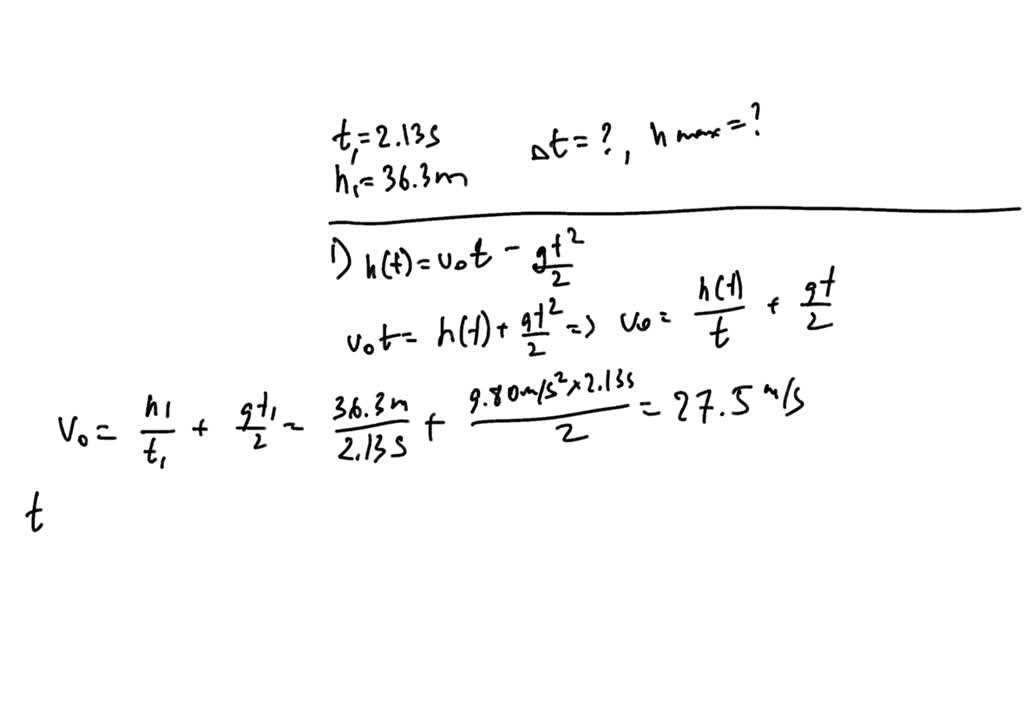 t₁=2.13s Δt=?, h max=?
h₁=36.3m
1) h(t)=v₀t - gt²/2
v₀t= h(t)+ gt²/2 => v₀= h(t)/t + gt/2
V₀= h1/t₁ + gt₁/2 = 36.3m/2.13s + 9.80m/s²×2.13s/2 = 27.5 m/s
t